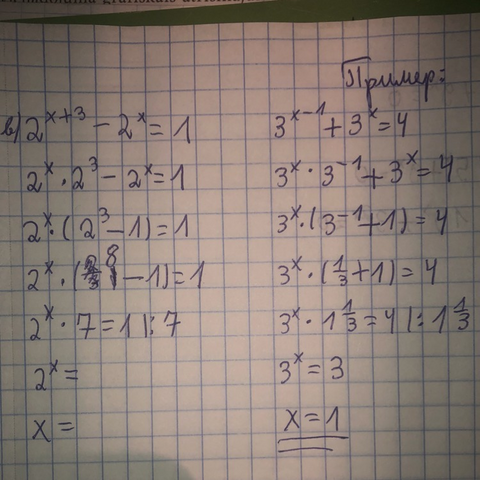 Пример:
в) 2^{x+3} - 2^x = 1
2^x · 2^3 - 2^x = 1
2^x · (2^3 - 1) = 1
2^x · (8 - 1) = 1
2^x · 7 = 1 |: 7
2^x =
x =
3^{x-1} + 3^x = 4
3^x · 3^{-1} + 3^x = 4
3^x · (3^{-1} + 1) = 4
3^x · (1/3 + 1) = 4
3^x · 1 1/3 = 4 |: 1 1/3
3^x = 3
x = 1